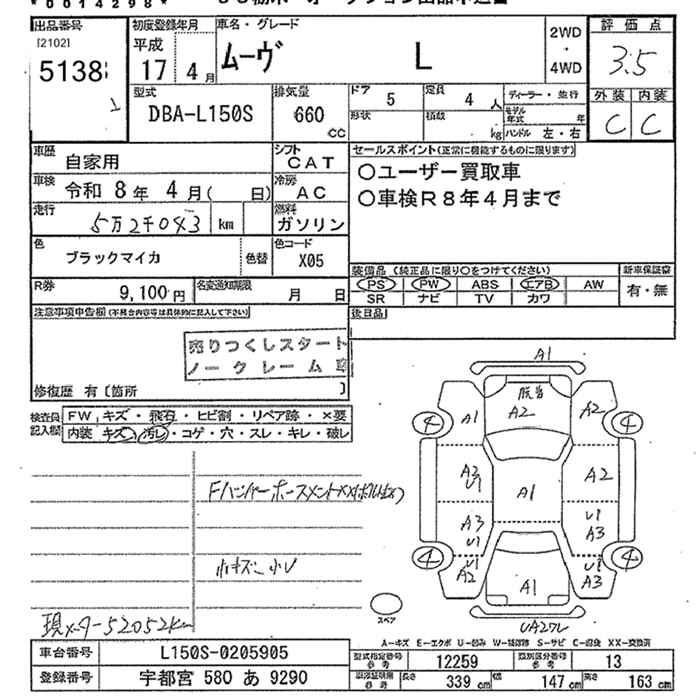 *0014298*
出品番号 [2102] 5138
初度登録年月 平成 17 4月
車名・グレード ムーヴ L
2WD ・ 4WD
評価点 3.5
型式 DBA-L150S
排気量 660 CC
ドア 5
定員 4人
形状
積載 kg
ディーラー・並行
モデル年式 年
ハンドル 左・右
外装 内装
C C
車歴 自家用
シフト CAT
セールスポイント(正常に機能するものに限ります)
〇ユーザー買取車
〇車検R8年4月まで
車検 令和 8年 4月( 日)
冷房 AC
走行 5万2千043 km
燃料 ガソリン
色 ブラックマイカ 色替
色コード X05
装備品 (純正品に限り〇をつけてください) 新車保証書
PS PW ABS エアB AW 有・無
SR ナビ TV カワ
R券 9,100円
名変通知期限 月 日
後日品
注意事項申告欄(不具合内容等は具体的に記入して下さい)
売りつくしスタート
ノークレーム車
修復歴 有〔箇所 〕
検査員記入欄
FW キズ・飛石・ヒビ割・リペア跡・×要
内装 キズ・汚レ・コゲ・穴・スレ・キレ・破レ
小キズ 小U
現メーター52052km
A1
A1 A2 A2
4 4
A2 U1 A1 A2
A3 U1 U1 A3
4 4
U1 A2 A1 U1 A3
スペア
UA2
A-キズ E-エクボ U-凹み W-補修跡 S-サビ C-腐食 XX-交換済
車台番号 L150S-0205905
型式指定番号 参考 12259
類別区分番号 参考 13
登録番号 宇都宮 580 あ 9290
参考 長さ 339 cm 幅 147 cm 高さ 163 cm